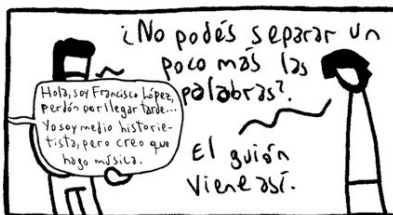 ¿No podés separar un
poco más las
palabras?.
Hola, soy Francisco López,
perdón por llegar tarde...
Yo soy medio historie-
tista, pero creo que
hago música.
El guión
viene así.